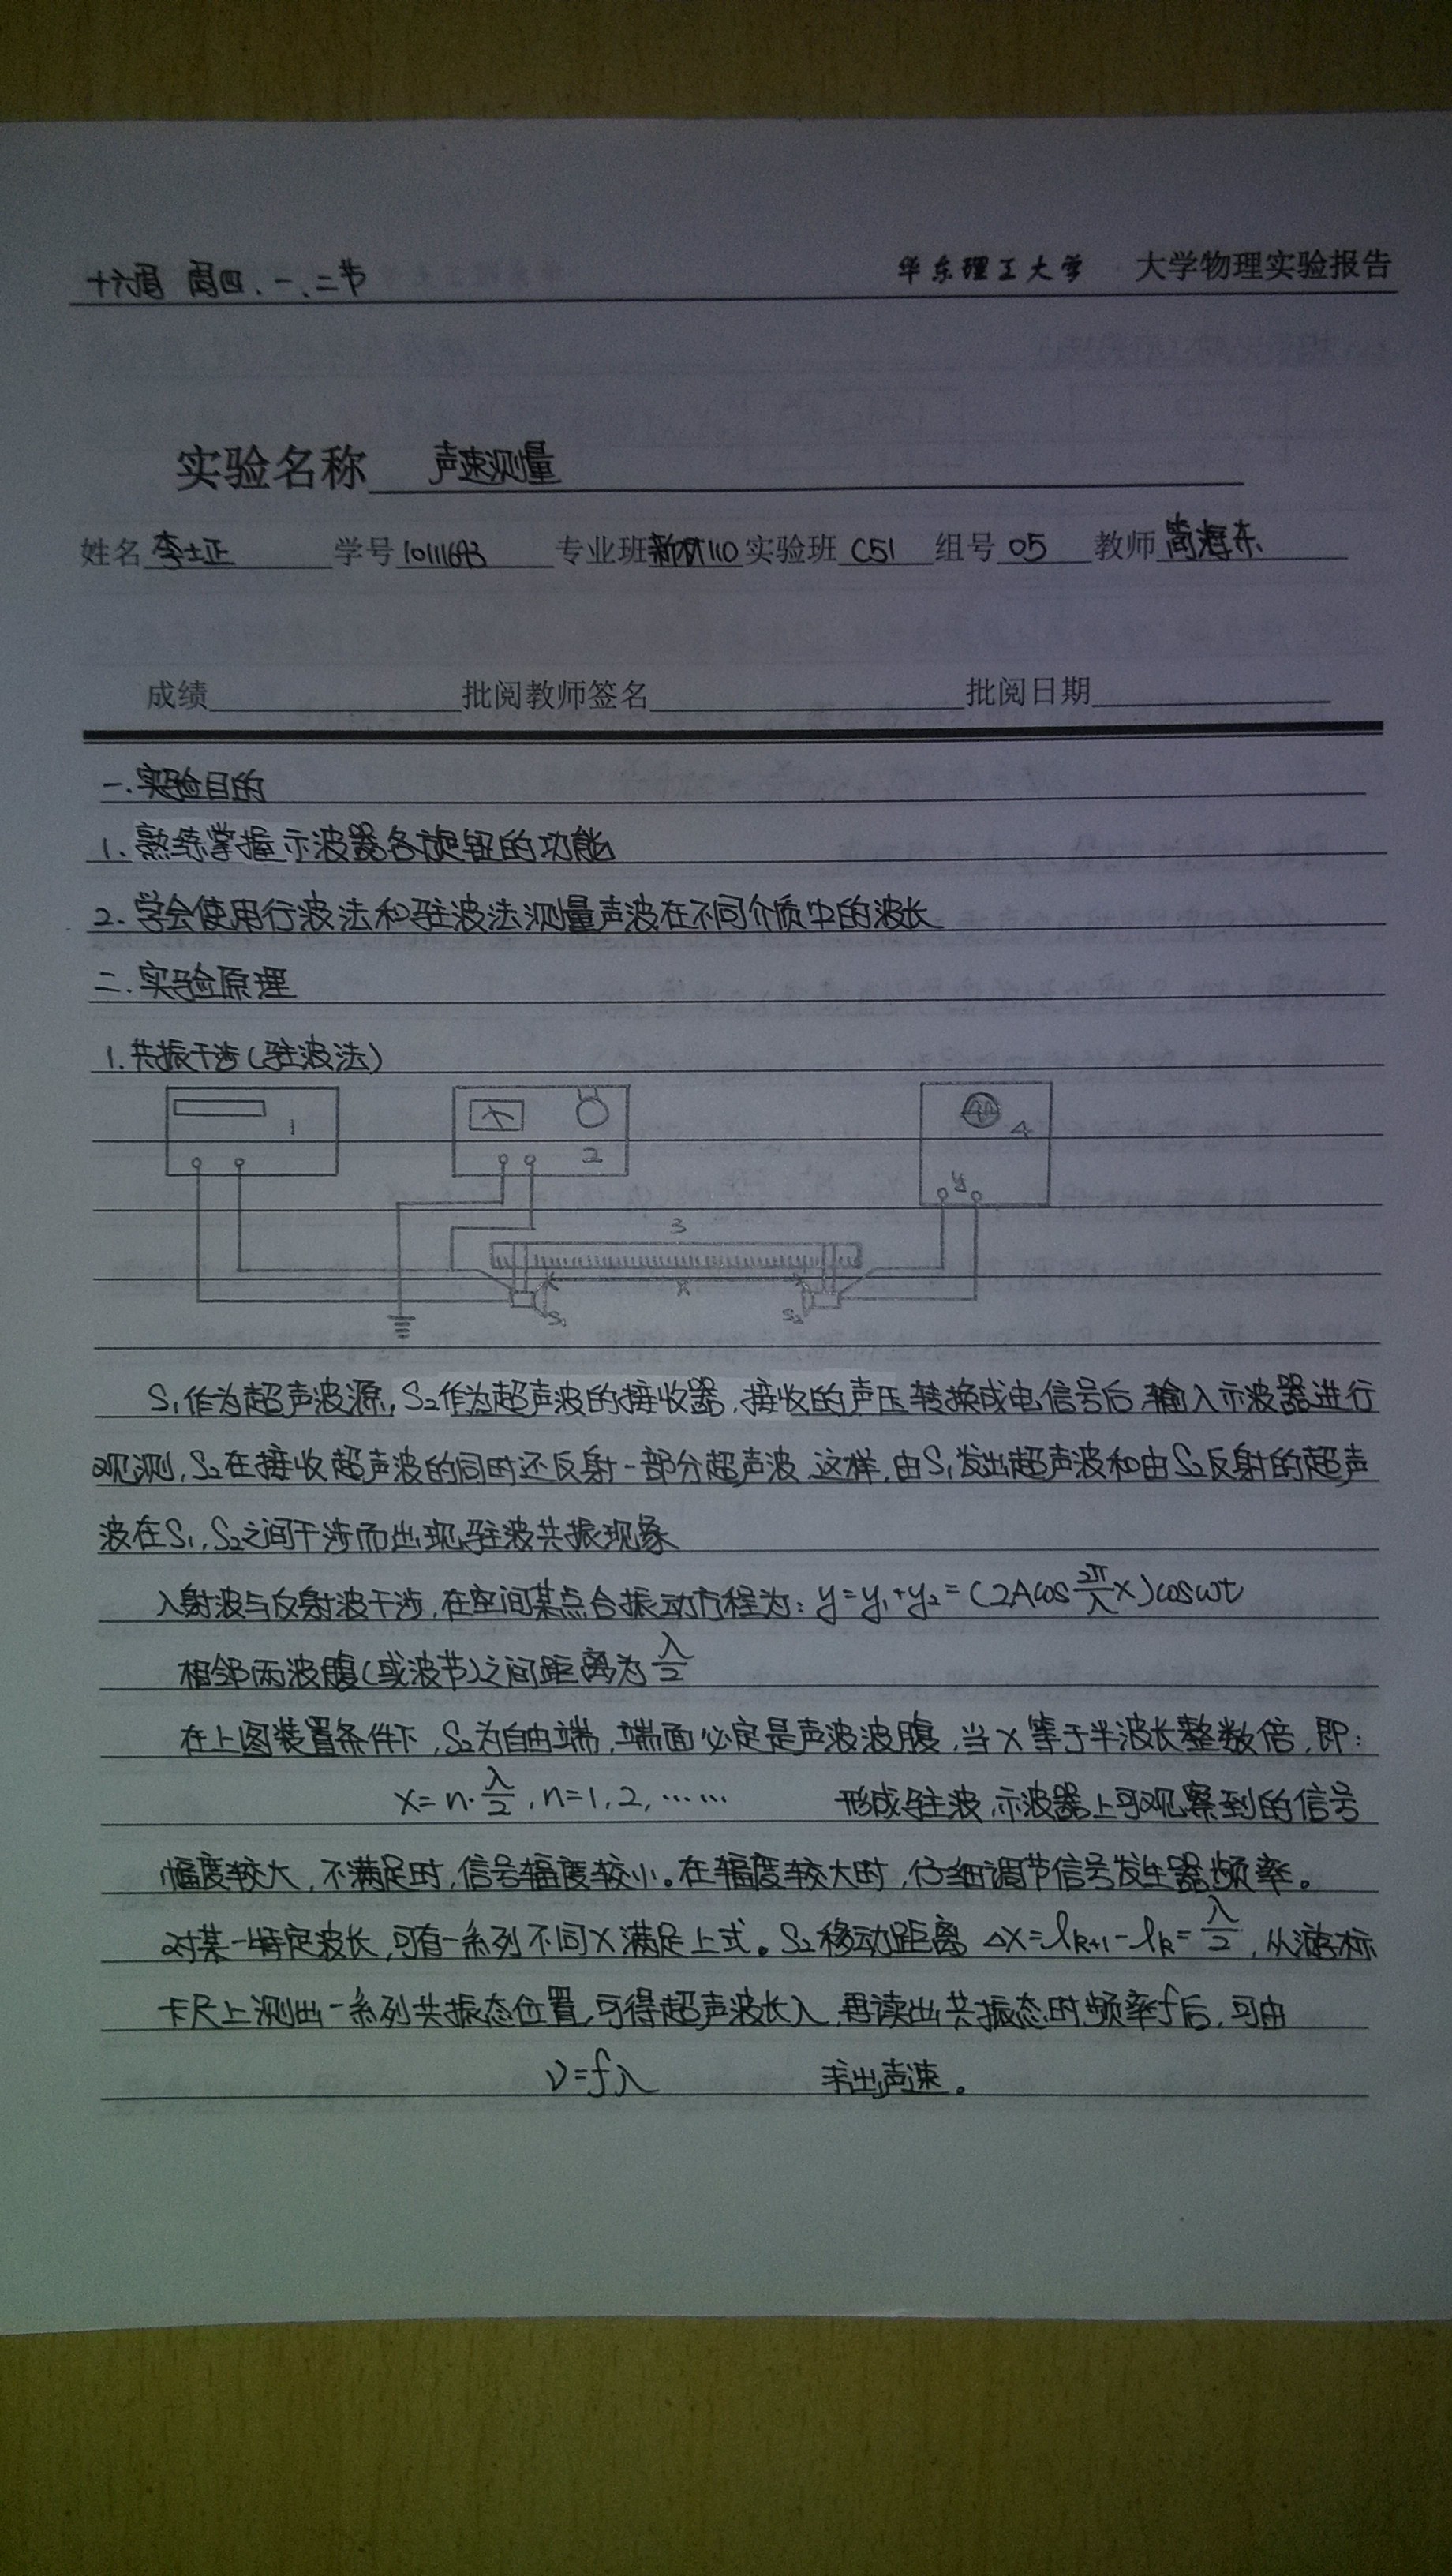 十六周 周四、一、二节 华东理工大学 大学物理实验报告
实验名称 声速测量
姓名 李士正 学号 10111693 专业班 新材110 实验班 C51 组号 05 教师 海东
成绩 批阅教师签名 批阅日期
一.实验目的
1.熟练掌握示波器各旋钮的功能
2.学会使用行波法和驻波法测量声波在不同介质中的波长
二.实验原理
1.共振干涉(驻波法)
1 2 4
y
3
x
S₁ S₂
S₁作为超声波源,S₂作为超声波的接收器,接收的声压转换成电信号后,输入示波器进行
观测,S₂在接收超声波的同时还反射一部分超声波,这样,由S₁发出超声波和由S₂反射的超声
波在S₁,S₂之间干涉而出现驻波共振现象
入射波与反射波干涉,在空间某点合振动方程为: y=y₁+y₂=(2Acos 2π/λ x)coswt
相邻两波腹(或波节)之间距离为 λ/2
在上图装置条件下,S₂为自由端,端面必定是声波波腹,当x等于半波长整数倍,即:
x=n·λ/2,n=1,2,…… 形成驻波,示波器上可观察到的信号
幅度较大,不满足时,信号幅度较小。在幅度较大时,仔细调节信号发生器频率。
对某一特定波长,可有一系列不同x满足上式。S₂移动距离 Δx=lₖ₊₁-lₖ=λ/2,从游标
卡尺上测出一系列共振态位置,可得超声波长λ,再读出共振态时频率f后,可由
v=fλ 求出声速。